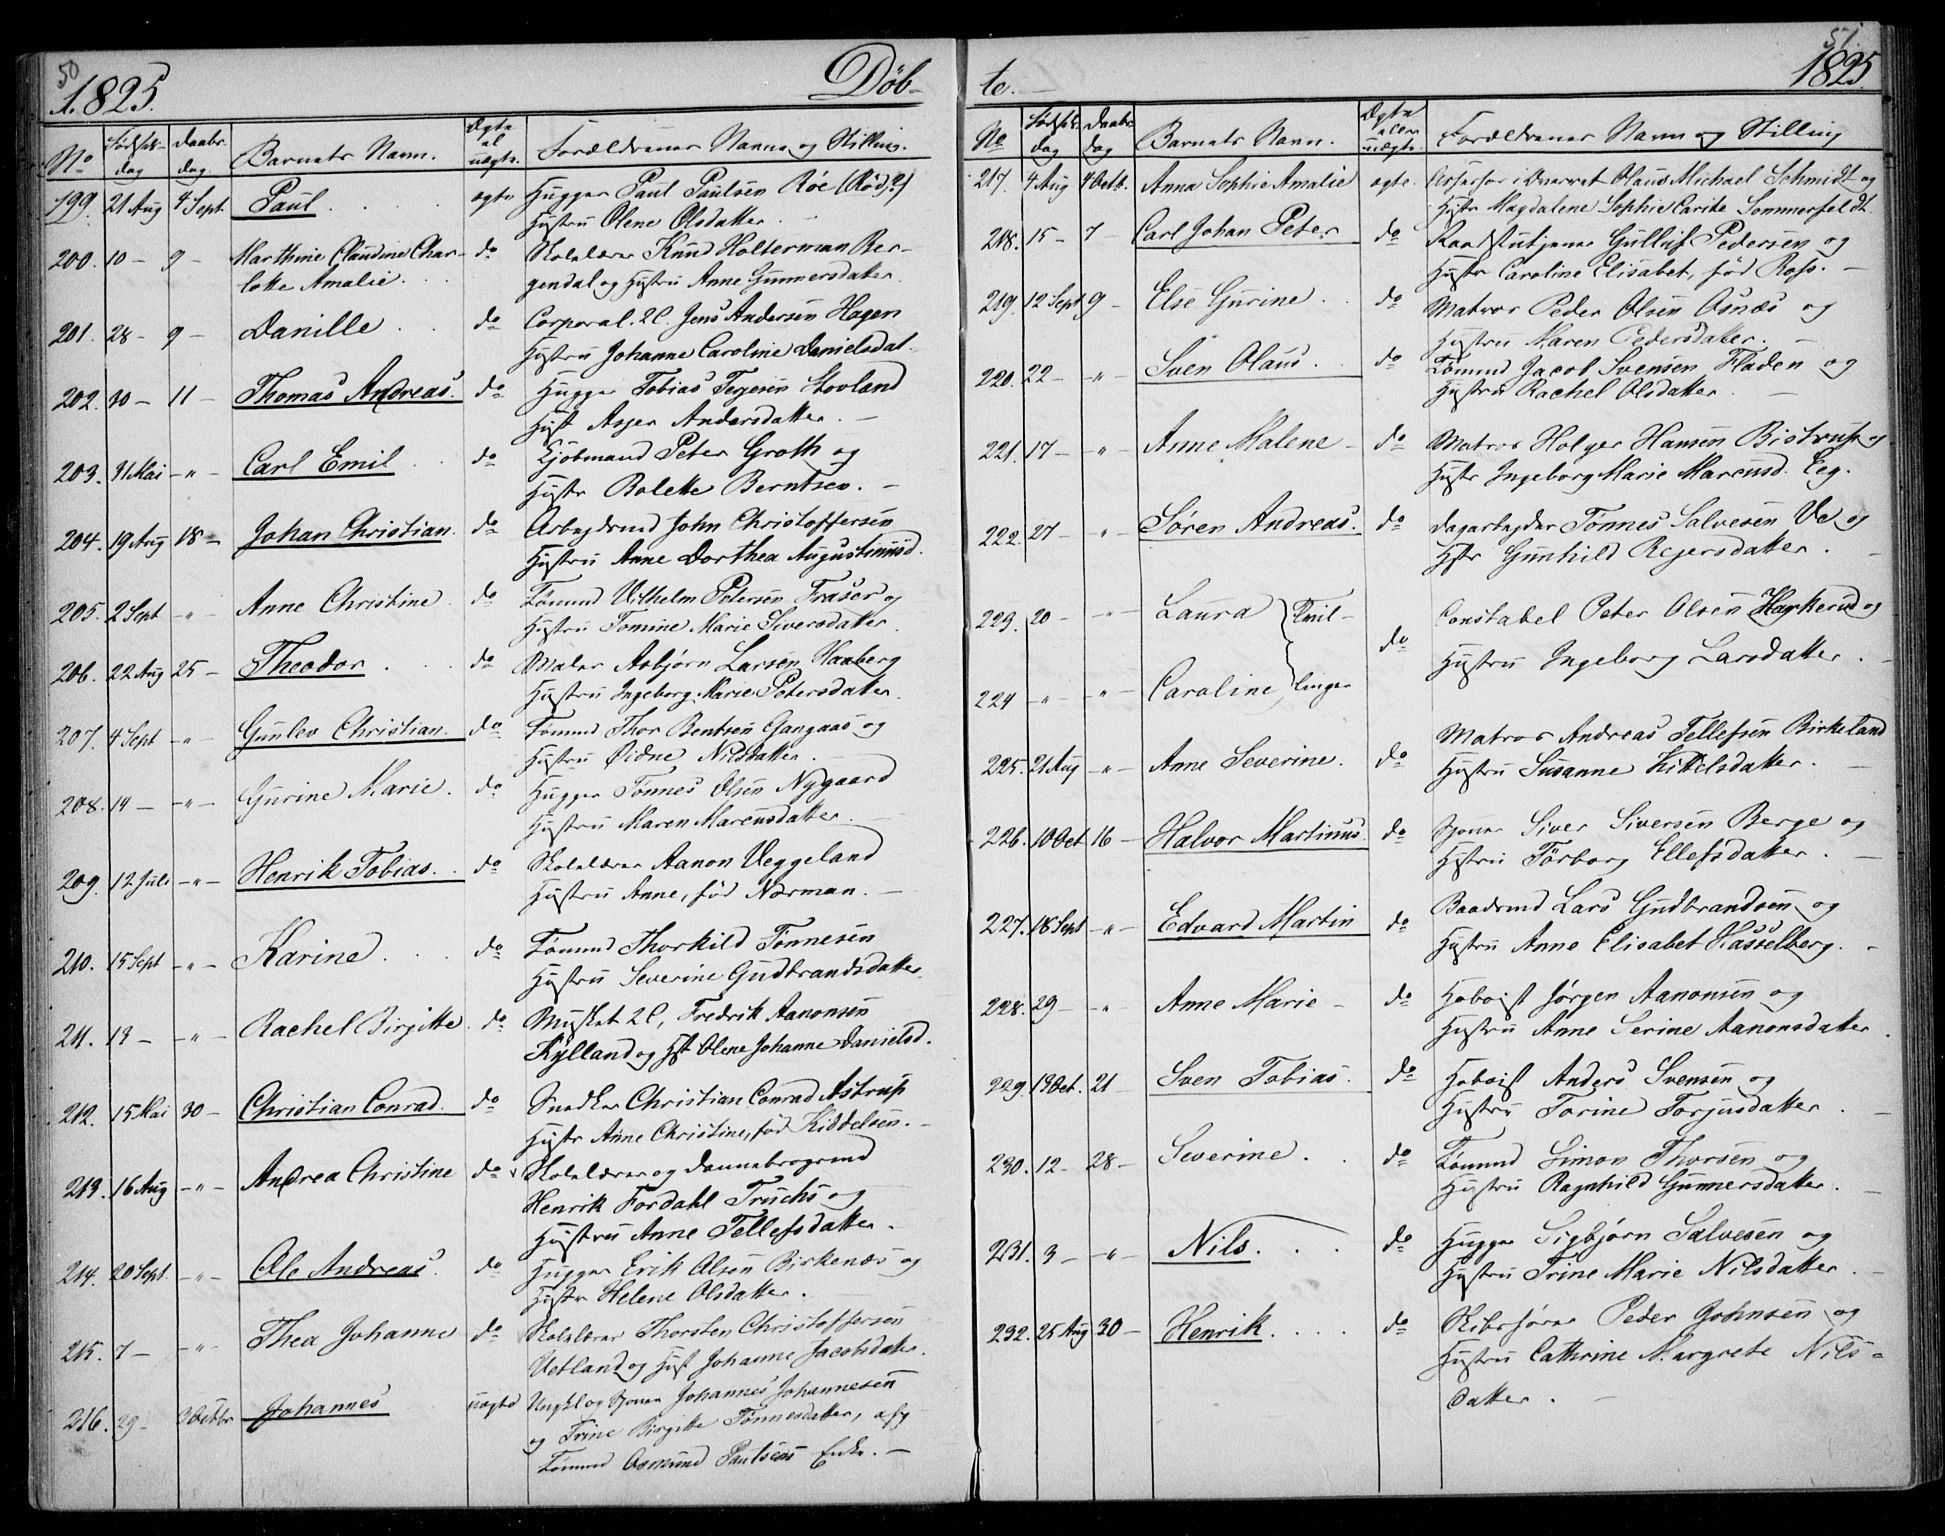 50
1825.
Døb-
No
Fødsels-
dag
Daabs-
dag.
Barnets Navn.
Ægte
el
uægte.
Forældrenes Navne og Stilling.
199. 21 Aug 4 Sept Paul . . . . ægte Hugger Paul Paulsen Røe (Rød?)
Hustru Olene Olsdatter. -
200. 10 - 9 - Marthine Claudine Char- do Skolelærer Knud Holterman Ber-
lotte Amalie. . gendal og Hustru Anne Gunnersdatter.
201. 28 - 9 - Danille . . do Corporal. 2 C. Jens Andersen Hagen
Hustru Johanne Caroline Danielsdat.
202. 30 - 11 - Thomas Andreas. do Hugger Tobias Tejesen Stovland
Hust Asjer Andersdatter. -
203. 31 Mai -"- Carl Emil . . do Kjøbmand Peter Groth og
Hustr Bolette Berntsen. -
204. 19 Aug 18 - Johan Christian. do Arbejdsmd John Christoffersen
Hustru Anne Dorthea Augustinusd.
205. 2 Sept -"- Anne Christine . do Tømmd Vilhelm Petersen Fraser og
Hustru Tomine Marie Siversdatter.
206. 22 Aug 25 - Theodor . . . do Maler Asbjørn Larsen Haaberg
Hustru Ingeborg Marie Petersdatter.
207. 4 Sept -"- Gunlev Christian. do Tømmd Thor Bentsen Gangaas og
Hustru Øidne Nilsdatter. -
208. 14 - -"- Gurine Marie . do Hugger Tønnes Olsen Nygaard
Hustru Maren Marcusdatter. -
209. 12 Juli -"- Henrik Tobias. . do Skolelærer Aanon Veggeland
Hustru Anne, fød Norman. -
210. 15 Sept -"- Karine . . . do Tømmd Thorkild Tønnesen
Hustru Severine Gudbrandsdatter.
211. 19 - -"- Rachel Birgitte. do Musket 2 C, Fredrik Aanonsen
Kylland og Hst Olene Johanne Danielsd.
212. 15 Mai 30 - Christian Conrad. do Snedker Christian Conrad Astrup
Hustr Anne Christine, fød Kiddelsen. -
213. 16 Aug -"- Andrea Christine do Skolelærer og Dannebrogsmd
Henrik Fordahl Fruchs og
Hustru Anne Tellefsdatter.
214. 20 Sept. -"- Ole Andreas. do Hugger Erik Olsen Birkenæs og
Hustr Helene Olsdatter.
215. 7 - -"- Thea Johanne do Skolelærer Thorsten Christoffersen
Vetland og Hust Johanne Jacobsdatter.
216. 29 - 3 Octbr Johannes uægte Ungkl og Spener Johannes Johannesen
og Trine Birgitte Tønnesdatter, afg
Tømmd Osmund Paulsens Enke. -
51.
1825.
te.
No
Fødsels-
dag
Daabs-
dag
Barnets Navn.
Ægte
eller
uægte.
Forældrenes Navn og Stilling
217. 4 Aug 4 Octb. Anna Sophie Amalie ægte. Assessor i Overret Olaus Michael Schmidt og
Hustr Magdalene Sophie Carike Sommerfeldt.
218. 15 - 7 - Carl Johan Peter. do Raadstutjener Gulluf Pedersen og
Hustr Caroline Elisabet, fød Ross. -
219. 12 Sept 9 - Else Gurine . . do Matros Peder Olsen Osnæs og
Hustru Maren Pedersdatter. -
220. 22 - -"- Sven Olaus. . do Tømmd Jacob Svensen Fladen og
Hustru Rachel Olsdatter . -
221. 17 - -"- Anne Malene - do Matros Holger Hansen Bistrup og
Hustr Ingeborg Marie Marcusd. Eeg.
222. 27 - -"- Søren Andreas. do Dagarbejder Tønnes Salvesen Ve og
Hstr Gunhild Rejersdatter . -
223. 20 - "- Laura } Tvil- do Constabel Peter Olsen Haykerud og
Hustru Ingeborg Larsdatter . -
224 -"- "- Caroline, } linger
225. 21 Aug -"- Anne Severine. do Matros Andreas Tellefsen Birkeland
Hustru Susanne Kittilsdatter. -
226. 10 Oct 16 - Halvor Martinus. do Spener Siver Siversen Berge og
Hustru Tørborg Ellefsdatter. -
227. 18 Sept -"- Edvard Martin do Baadsmd Lars Gudbrandsen og
Hustru Anne Elisabet Hasselberg. -
228. 29 - "- Anne Marie - do Hoboist Jørgen Aanonsen og
Hustru Anne Serine Aanonsdatter.
229. 13 Oct. 21 - Sven Tobias. do Hoboist Anders Svensen og
Hustru Torine Torjusdatter . -
230. 12 - 28 - Severine. . . do Tømmd Simon Thorsen og
Hustru Ragnhild Gunnersdatter. -
231. 3 - -"- Nils. . . . do Hugger Sigbjørn Salvesen og
Hustru Trine Marie Nilsdatter . -
232. 25 Aug 30 - Henrik. . . . do Skibsfører Peder Johnsen og
Hustru Cathrine Margrete Nils-
datter . -